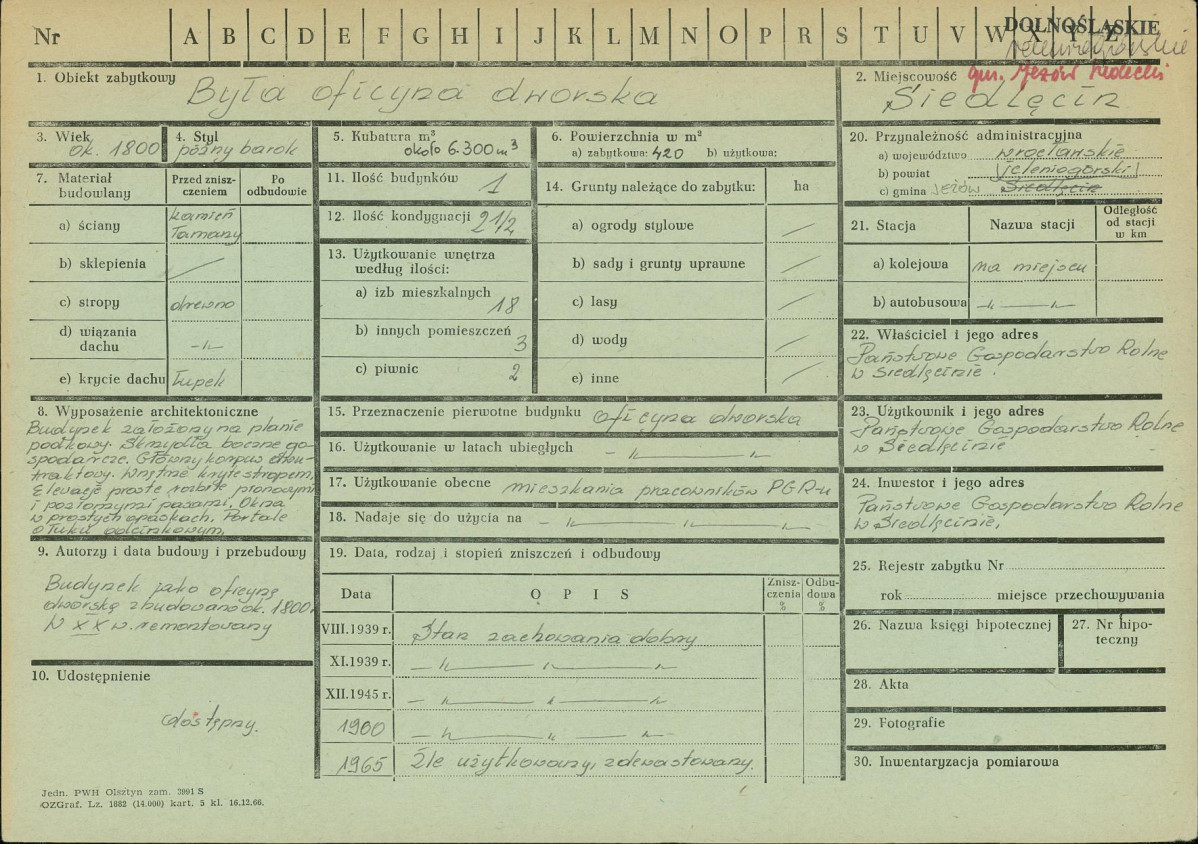 Nr A B C D E F G H I J K L M N O P R S T U V W X Y Z
DOLNOŚLĄSKIE
jeleniogórskie
gm. Jeżów Sudecki
1. Obiekt zabytkowy
Była oficyna dworska
2. Miejscowość
Siedlęcin
3. Wiek
ok. 1800
4. Styl
późny barok
5. Kubatura m³
około 6.300 m³
6. Powierzchnia w m²
a) zabytkowa: 420 b) użytkowa:
7. Materiał budowlany
Przed zniszczeniem
Po odbudowie
a) ściany kamień łamany
b) sklepienia /
c) stropy drewno
d) wiązania dachu -„-
e) krycie dachu łupek
11. Ilość budynków 1
12. Ilość kondygnacji 2 1/2
13. Użytkowanie wnętrza według ilości:
a) izb mieszkalnych 18
b) innych pomieszczeń 3
c) piwnic 2
14. Grunty należące do zabytku: ha
a) ogrody stylowe /
b) sady i grunty uprawne /
c) lasy /
d) wody /
e) inne /
20. Przynależność administracyjna
a) województwo wrocławskie
b) powiat jeleniogórski
c) gmina Jeżów Siedlęcin
21. Stacja
Nazwa stacji
Odległość od stacji w km
a) kolejowa na miejscu
b) autobusowa -„-„-
22. Właściciel i jego adres
Państwowe Gospodarstwo Rolne
w Siedlęcinie.
8. Wyposażenie architektoniczne
Budynek założony na planie
podkowy. Skrzydła boczne go-
spodarcze. Główny korpus dwu-
traktowy. Wnętrze kryte stropem.
Elewacje proste rozbite pionowymi
i poziomymi pasami. Okna
w prostych opaskach. Portale
o łuku odcinkowym.
15. Przeznaczenie pierwotne budynku oficyna dworska
16. Użytkowanie w latach ubiegłych -„-„-
17. Użytkowanie obecne mieszkania pracowników PGR-u
18. Nadaje się do użycia na -„-„-„-
23. Użytkownik i jego adres
Państwowe Gospodarstwo Rolne
w Siedlęcinie
24. Inwestor i jego adres
Państwowe Gospodarstwo Rolne
w Siedlęcinie.
9. Autorzy i data budowy i przebudowy
Budynek jako oficynę
dworską zbudowano ok. 1800.
W XX w. remontowany
19. Data, rodzaj i stopień zniszczeń i odbudowy
Data
O P I S
Zniszczenia %
Odbudowa %
VIII.1939 r. Stan zachowania dobry
XI.1939 r. -„-„-„-
XII.1945 r. -„-„-„-
1960 -„-„-„-
1965 Źle użytkowany, zdewastowany.
10. Udostępnienie
dostępny.
25. Rejestr zabytku Nr
rok miejsce przechowywania
26. Nazwa księgi hipotecznej
27. Nr hipoteczny
28. Akta
29. Fotografie
30. Inwentaryzacja pomiarowa
Jedn. PWH Olsztyn zam. 3991 S
OZGraf. Lz. 1882 (14.000) kart. 5 kl. 16.12.66.